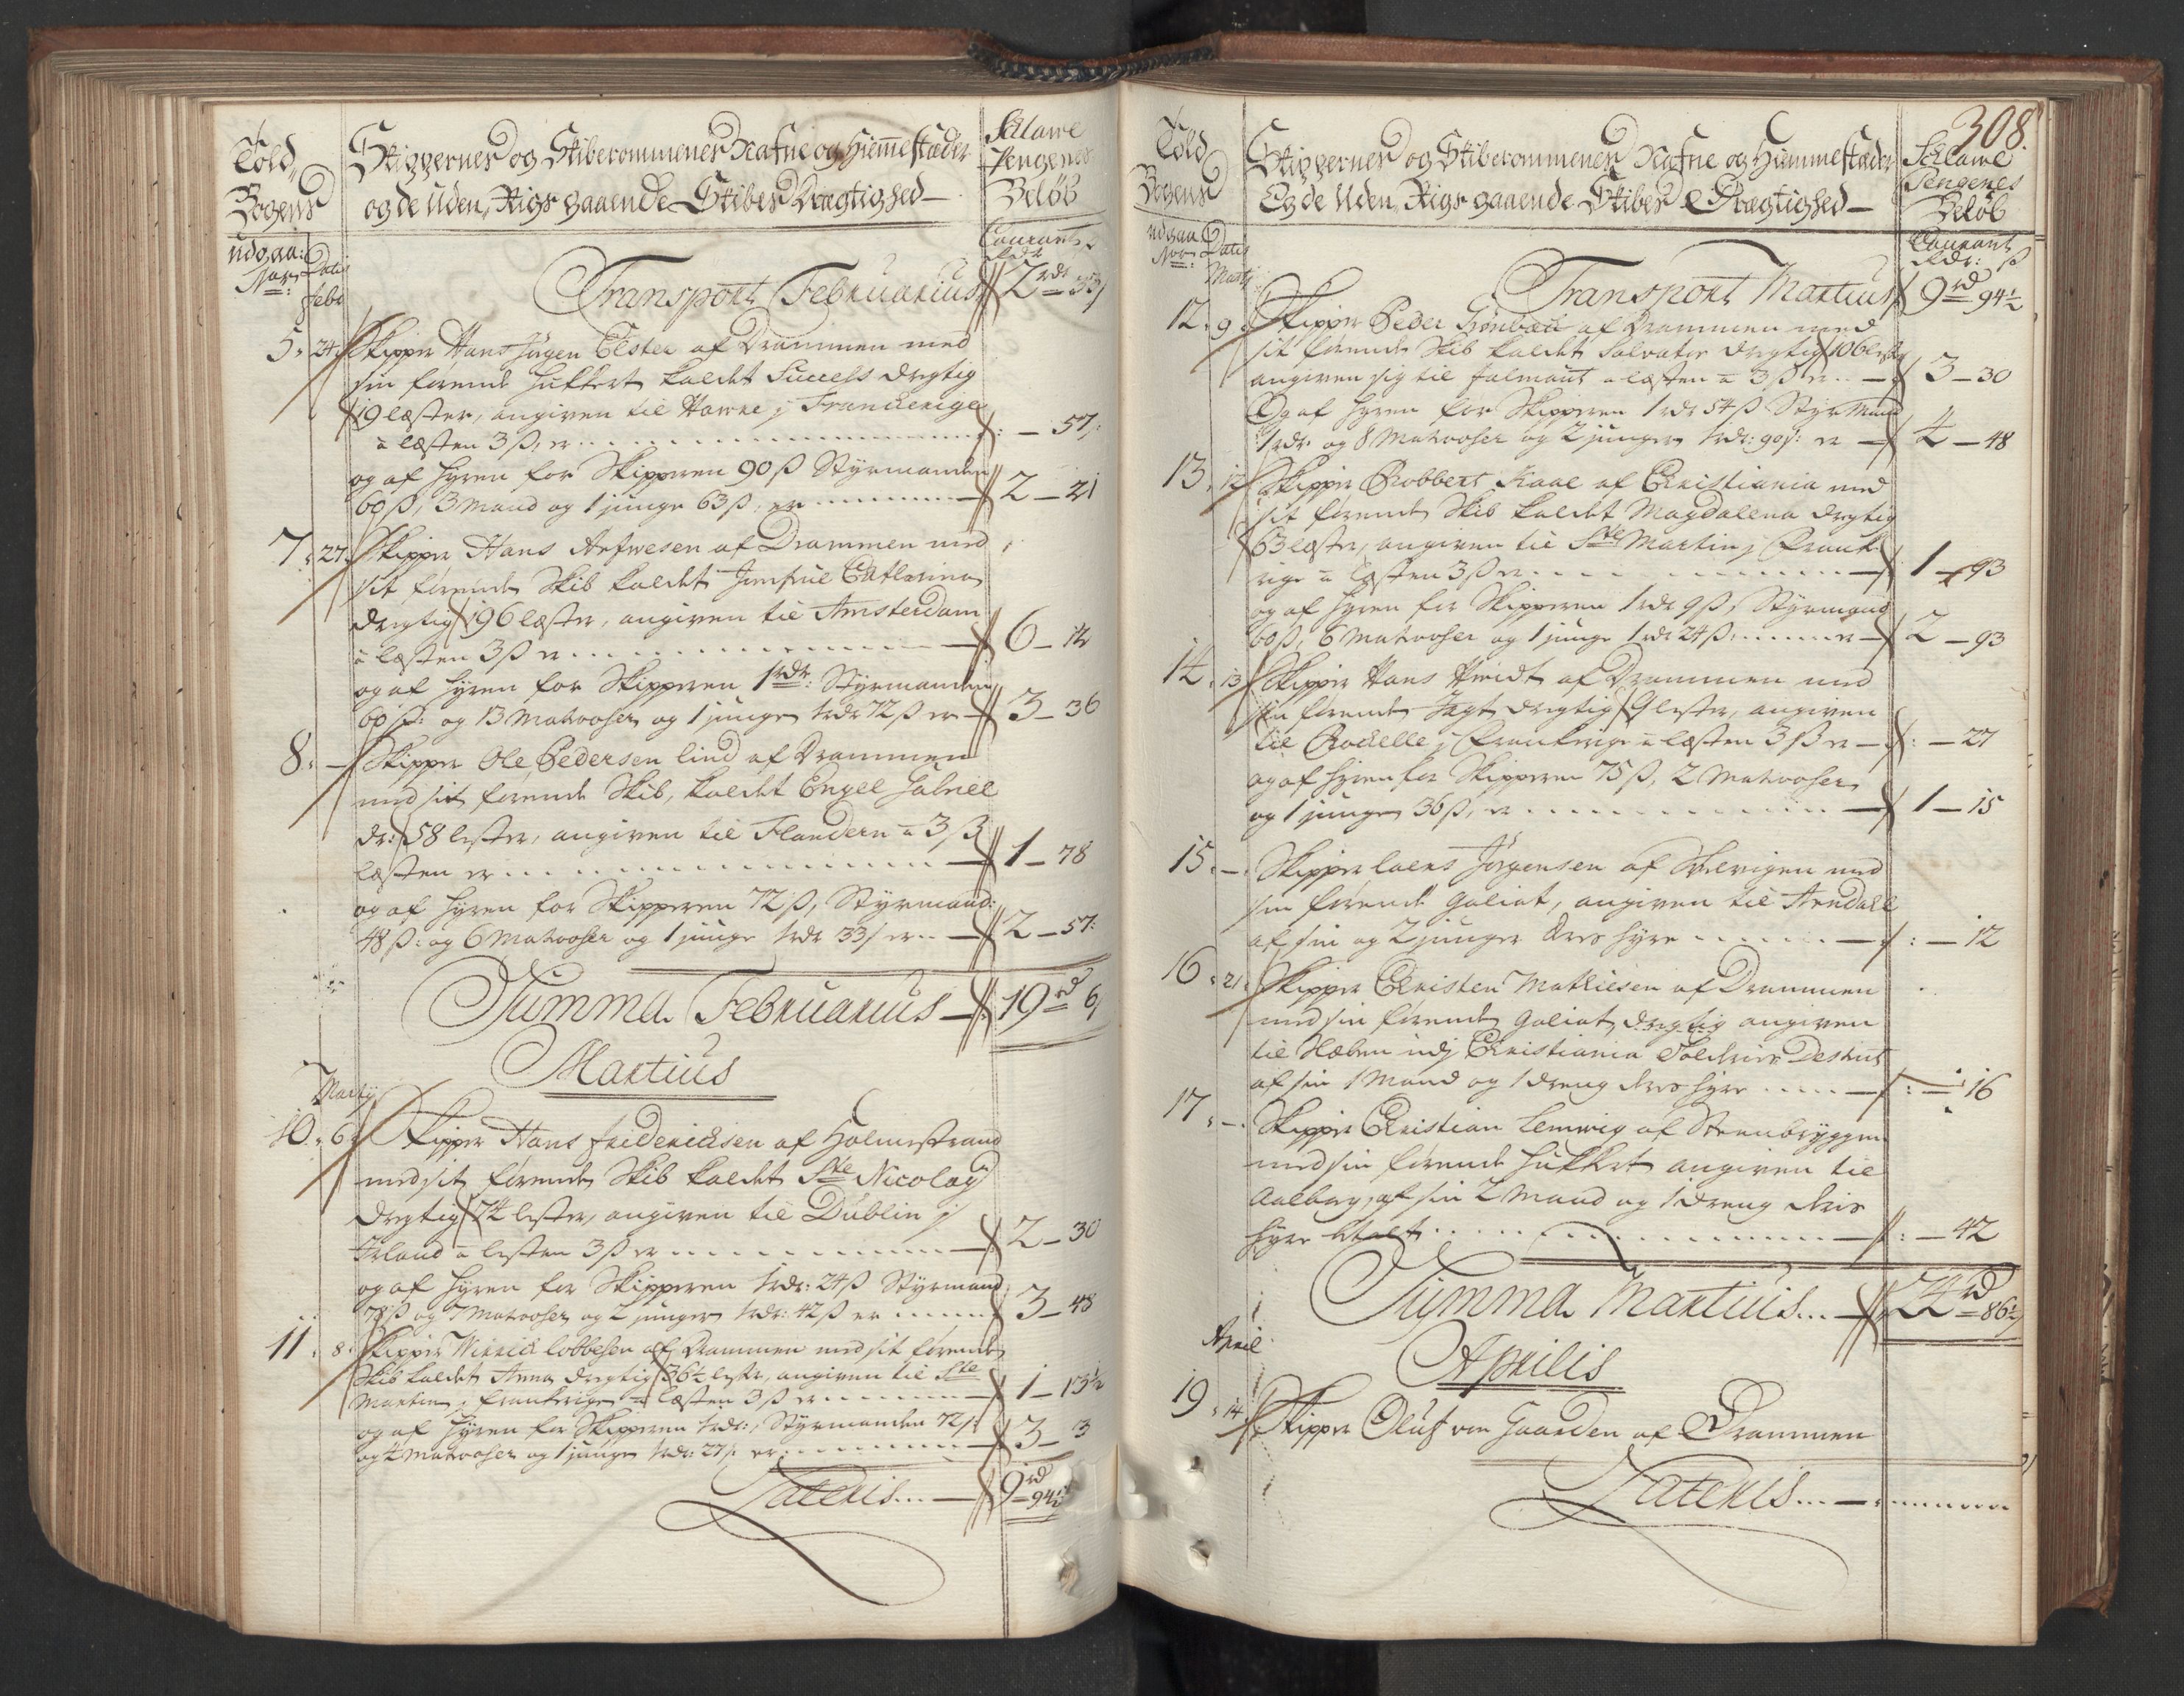 Told
Bogens
udgaa:
No:
Datis
Skippernes og Skiberommenes Nafne og Hiemmestæder
og de Uden Rigs gaaende Skibes Drægtighed
Sclawe
Pengenes
Beløb
Courant
Rdr
Febr
Transport Februarius 2 rdr 33
5. 24. Skipper Hans Jürgen Elster af Drammen med
sin førende Hukkert kaldet Success drægtig
19 læster, angiven til Hawre j Franckerige
a læsten 3 ß er : — 57
og af hyren for Skipperen 90 ß Styrmanden
60 ß, 3 Mand og 1 junge 63 ß, er 2 — 21
7. 27. Skipper Hans Anfwesen af Drammen med
sit førende Skib kaldet Jomfrue Catharina
drægtig 196 læster, angiven til Amsterdam
a læsten 3 ß er 6 — 12
og af hyren for Skipperen 1 rdr: Styrmanden
60 ß: og 13 Matrooser og 1 junge 1 rdr 72 ß er 3 — 36
8. — Skipper Ole Pedersen Lind af Drammen
med sit førende Skib, kaldet Engel Gabriel
dr: 58 lester, angiven til Flandern a 3 ß
læsten er 1 — 78
og af hyren for Skipperen 72 ß, Styrmand:
48 ß: og 6 Matrooser og 1 junge 1 rdr 33 ß er 2 — 57:
Summa Februarius 19 rd 6
Martius
Martij
10. 6. Skipper Hans Friderichsen af Holmestrand
med sit førende Skib kaldet Ste Nicolay
drægtig 74 lester, angiven til Dublin j
Irland a lesten 3 ß er 2 — 30
og af hyren for Skipperen 1 rdr: 24 ß Styrmand
78 ß og 7 Matrooser og 2 junger 1 rdr: 42 ß er 3 — 48
11. 8. Skipper Wihried Lobbesen af Drammen med sit førende
Skib kaldet Anna drægtig 36½ lester, angiven til Ste
Martin j Frankerige a læsten 3 ß er 1 — 13½
og af hyren for Skipperen 1 rdr:, Styrmanden 72 ß
og 4 Matrooser og 1 junge 1 rdr: 27 ß er 3 — 3
Lateris 9 rd 94½
308.
Told
Bogens
udgaa
No:
Datis
Skippernes og Skiberommenes Nafne og Hiemmestæder
Og de Uden Rigs gaaende Skibes Drægtighed
Sclawe
Pengenes
Beløb
Courant
Rdr: ß
Martij
Transport Martius 9 rd 94½
12. 9. Skipper Peder Grønbech af Drammen med
sit førende Skib kaldet Salvator drægtig 106 lester
angiven sig til Falmout a læsten a 3 ß er 3 — 30
Og af hyren for Skipperen 1 rdr 54 ß Styrmand
1 rdr: og 8 Matrooser og 2 junger 1 rdr: 90 ß: er 4 — 48
13. 12. Skipper Robbert Kaae af Christiania med
sit førende Skib kaldet Magdalena drægtig
63 læster, angiven til Ste Martin j Frank
rige a læsten 3 ß er 1 — 93
og af hyren for Skipperen 1 rdr 9 ß, Styrmand
60 ß, 6 Matrooser og 1 junge 1 rdr 24 ß, er 2 — 93
14. 13. Skipper Hans Hvidt af Drammen med
sin førende Jagt drægtig 9 lester, angiven
til Rochelle j Frankerige a læsten 3 ß er : — 27
og af hyren for Skipperen 75 ß, 2 Matrooser
og 1 junge 36 ß, er 1 — 15
15. — Skipper Laers Jørgensen af Svelvigen med
sin førende Galiot, angiven til Arndahl
af sin og 2 junger dres hyre : — 12
16. 21. Skipper Christen Mathiesen af Drammen
med sin førende Galiot drægtig angiven
til Hæben udj Christiania Tolderies Destrict
af sin 1 Mand og 1 dreng dres hyre : — 16
17. — Skipper Christian Lemwig af Steenbryggen
med sin førende Hukkert angiven til
Aalborg, af sin 2 Mand og 1 dreng deres
hyre betalt : — 42
Summa Martius 24 rd 86½
April
Aprilis
19. 14. Skipper Oluf von Gaarden af Drammen
Lateris